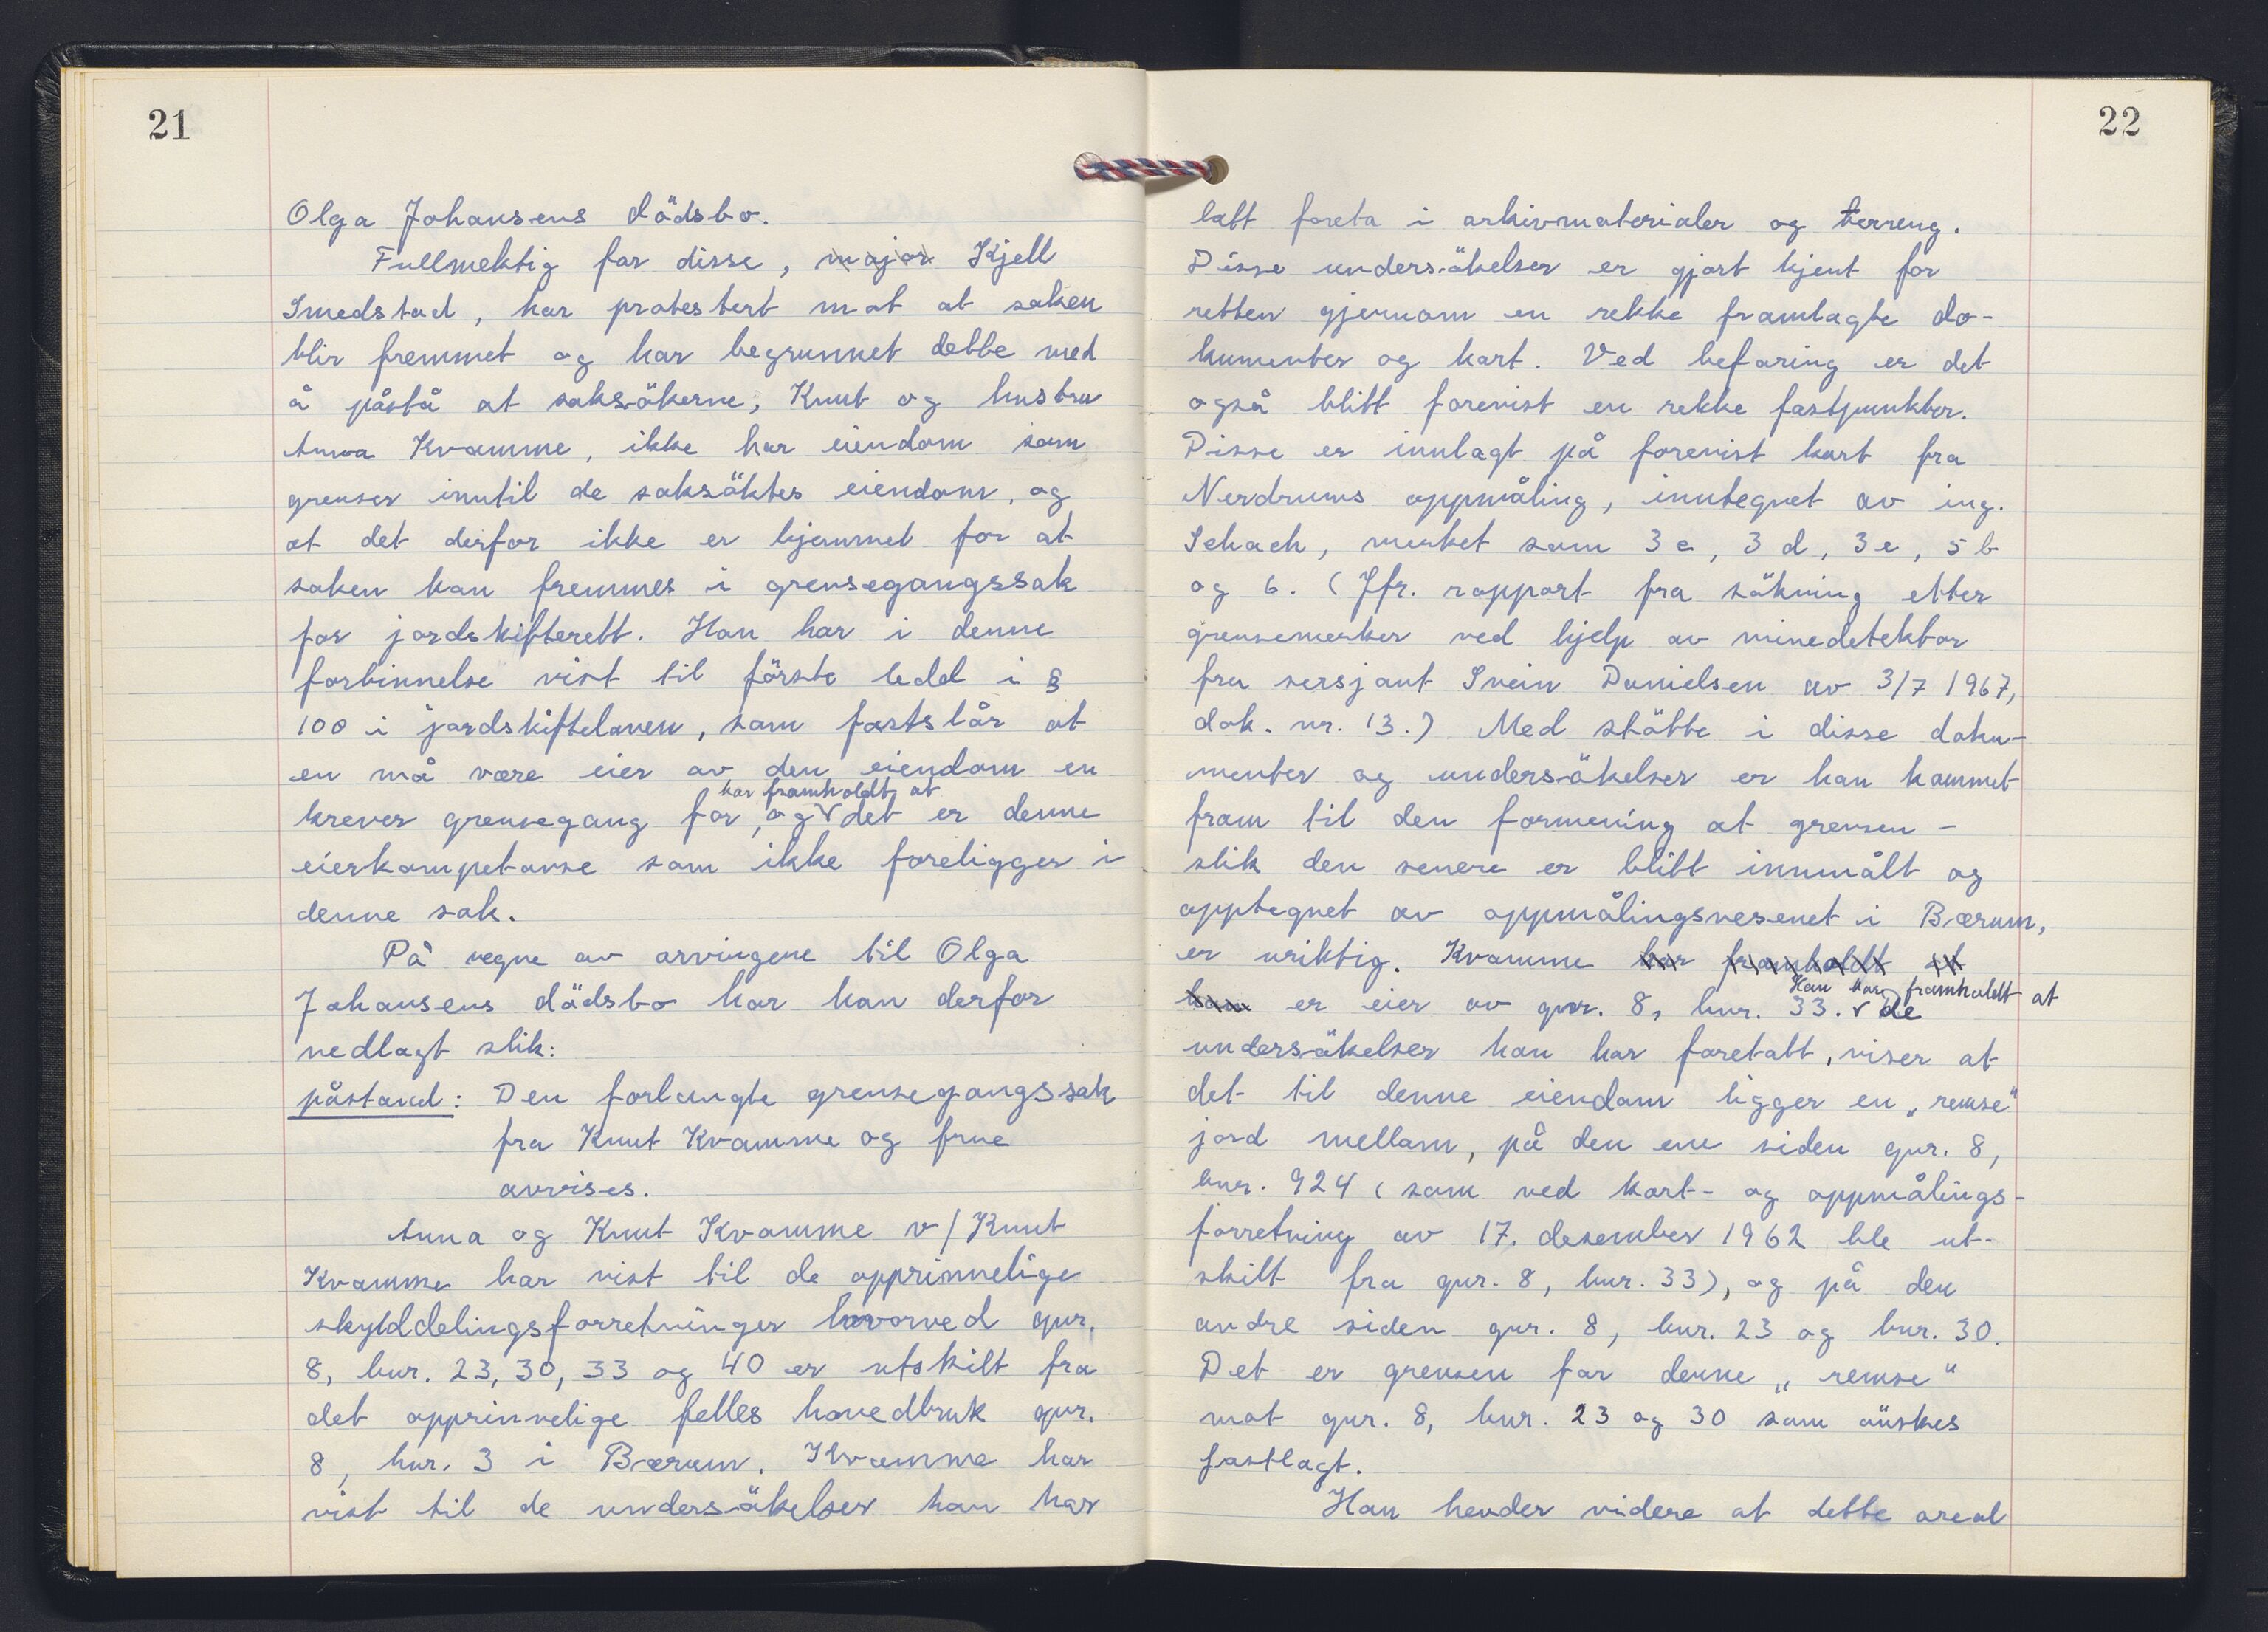 21
Olga Johansens dödsbo.
Fullmektig for disse, major Kjell
Smedstad, har protestert mot at saken
blir fremmet og har begrunnet dette med
å påstå at saksökerne, Knut og hustru
Anna Kvamme, ikke har eiendom som
grenser inntil de saksöktes eiendom, og
at det derfor ikke er hjemmel for at
saken kan fremmes i grensegangssak
for jordskifterett. Han har i denne
forbinnelse vist til förste ledd i §
100 i jordskifteloven, som fastslår at
en må være eier av den eiendom en
har framholdt, at
krever grensegang for, og v det er denne
eierkompetanse som ikke foreligger i
denne sak.
På vegne av arvingene til Olga
Johansens dödsbo har han derfor
nedlagt slik:
påstand: Den forlangte grensegangssak
fra Knut Kvamme og frue
avvises.
Anna og Knut Kvamme v/ Knut
Kvamme har vist til de opprinnelige
skylddelingsforretninger hvorved gnr.
8, bnr. 23, 30, 33 og 40 er utskilt fra
det opprinnelige felles hovedbruk gnr.
8, bnr. 3 i Bærum. Kvamme har
vist til de undersökelser han har
22
latt foreta i arkivmaterialer og terreng.
Disse undersökelser er gjort kjent for
retten gjennom en rekke framlagte do-
kumenter og kart. Ved befaring er det
også blitt forevist en rekke fastpunkter.
Disse er innlagt på forevist kart fra
Nerdrums oppmåling, inntegnet av ing.
Schach, merket som 3 c, 3 d, 3 e, 5 b
og 6. (Jfr. rapport fra sökning etter
grensemerker ved hjelp av minedetektor
fra sersjant Svein Danielsen av 3/7 1967,
dok. nr. 13.) Med stötte i disse doku-
menter og undersökelser er han kommet
fram til den formening at grensen -
slik den senere er blitt innmålt og
opptegnet av oppmålingsvesenet i Bærum,
er uriktig. Kvamme har framholdt at
Han har framholdt at
han er eier av gnr. 8, bnr. 33. v de
undersökelser han har foretatt, viser at
det til denne eiendom ligger en „remse"
jord mellom, på den ene siden gnr. 8,
bnr. 924 (som ved kart- og oppmålings-
forretning av 17. desember 1962 ble ut-
skilt fra gnr. 8, bnr. 33), og på den
andre siden gnr. 8, bnr. 23 og bnr. 30.
Det er grensen for denne „remse"
mot gnr. 8, bnr. 23 og 30 som önskes
fastlagt.
Han hevder videre at dette areal